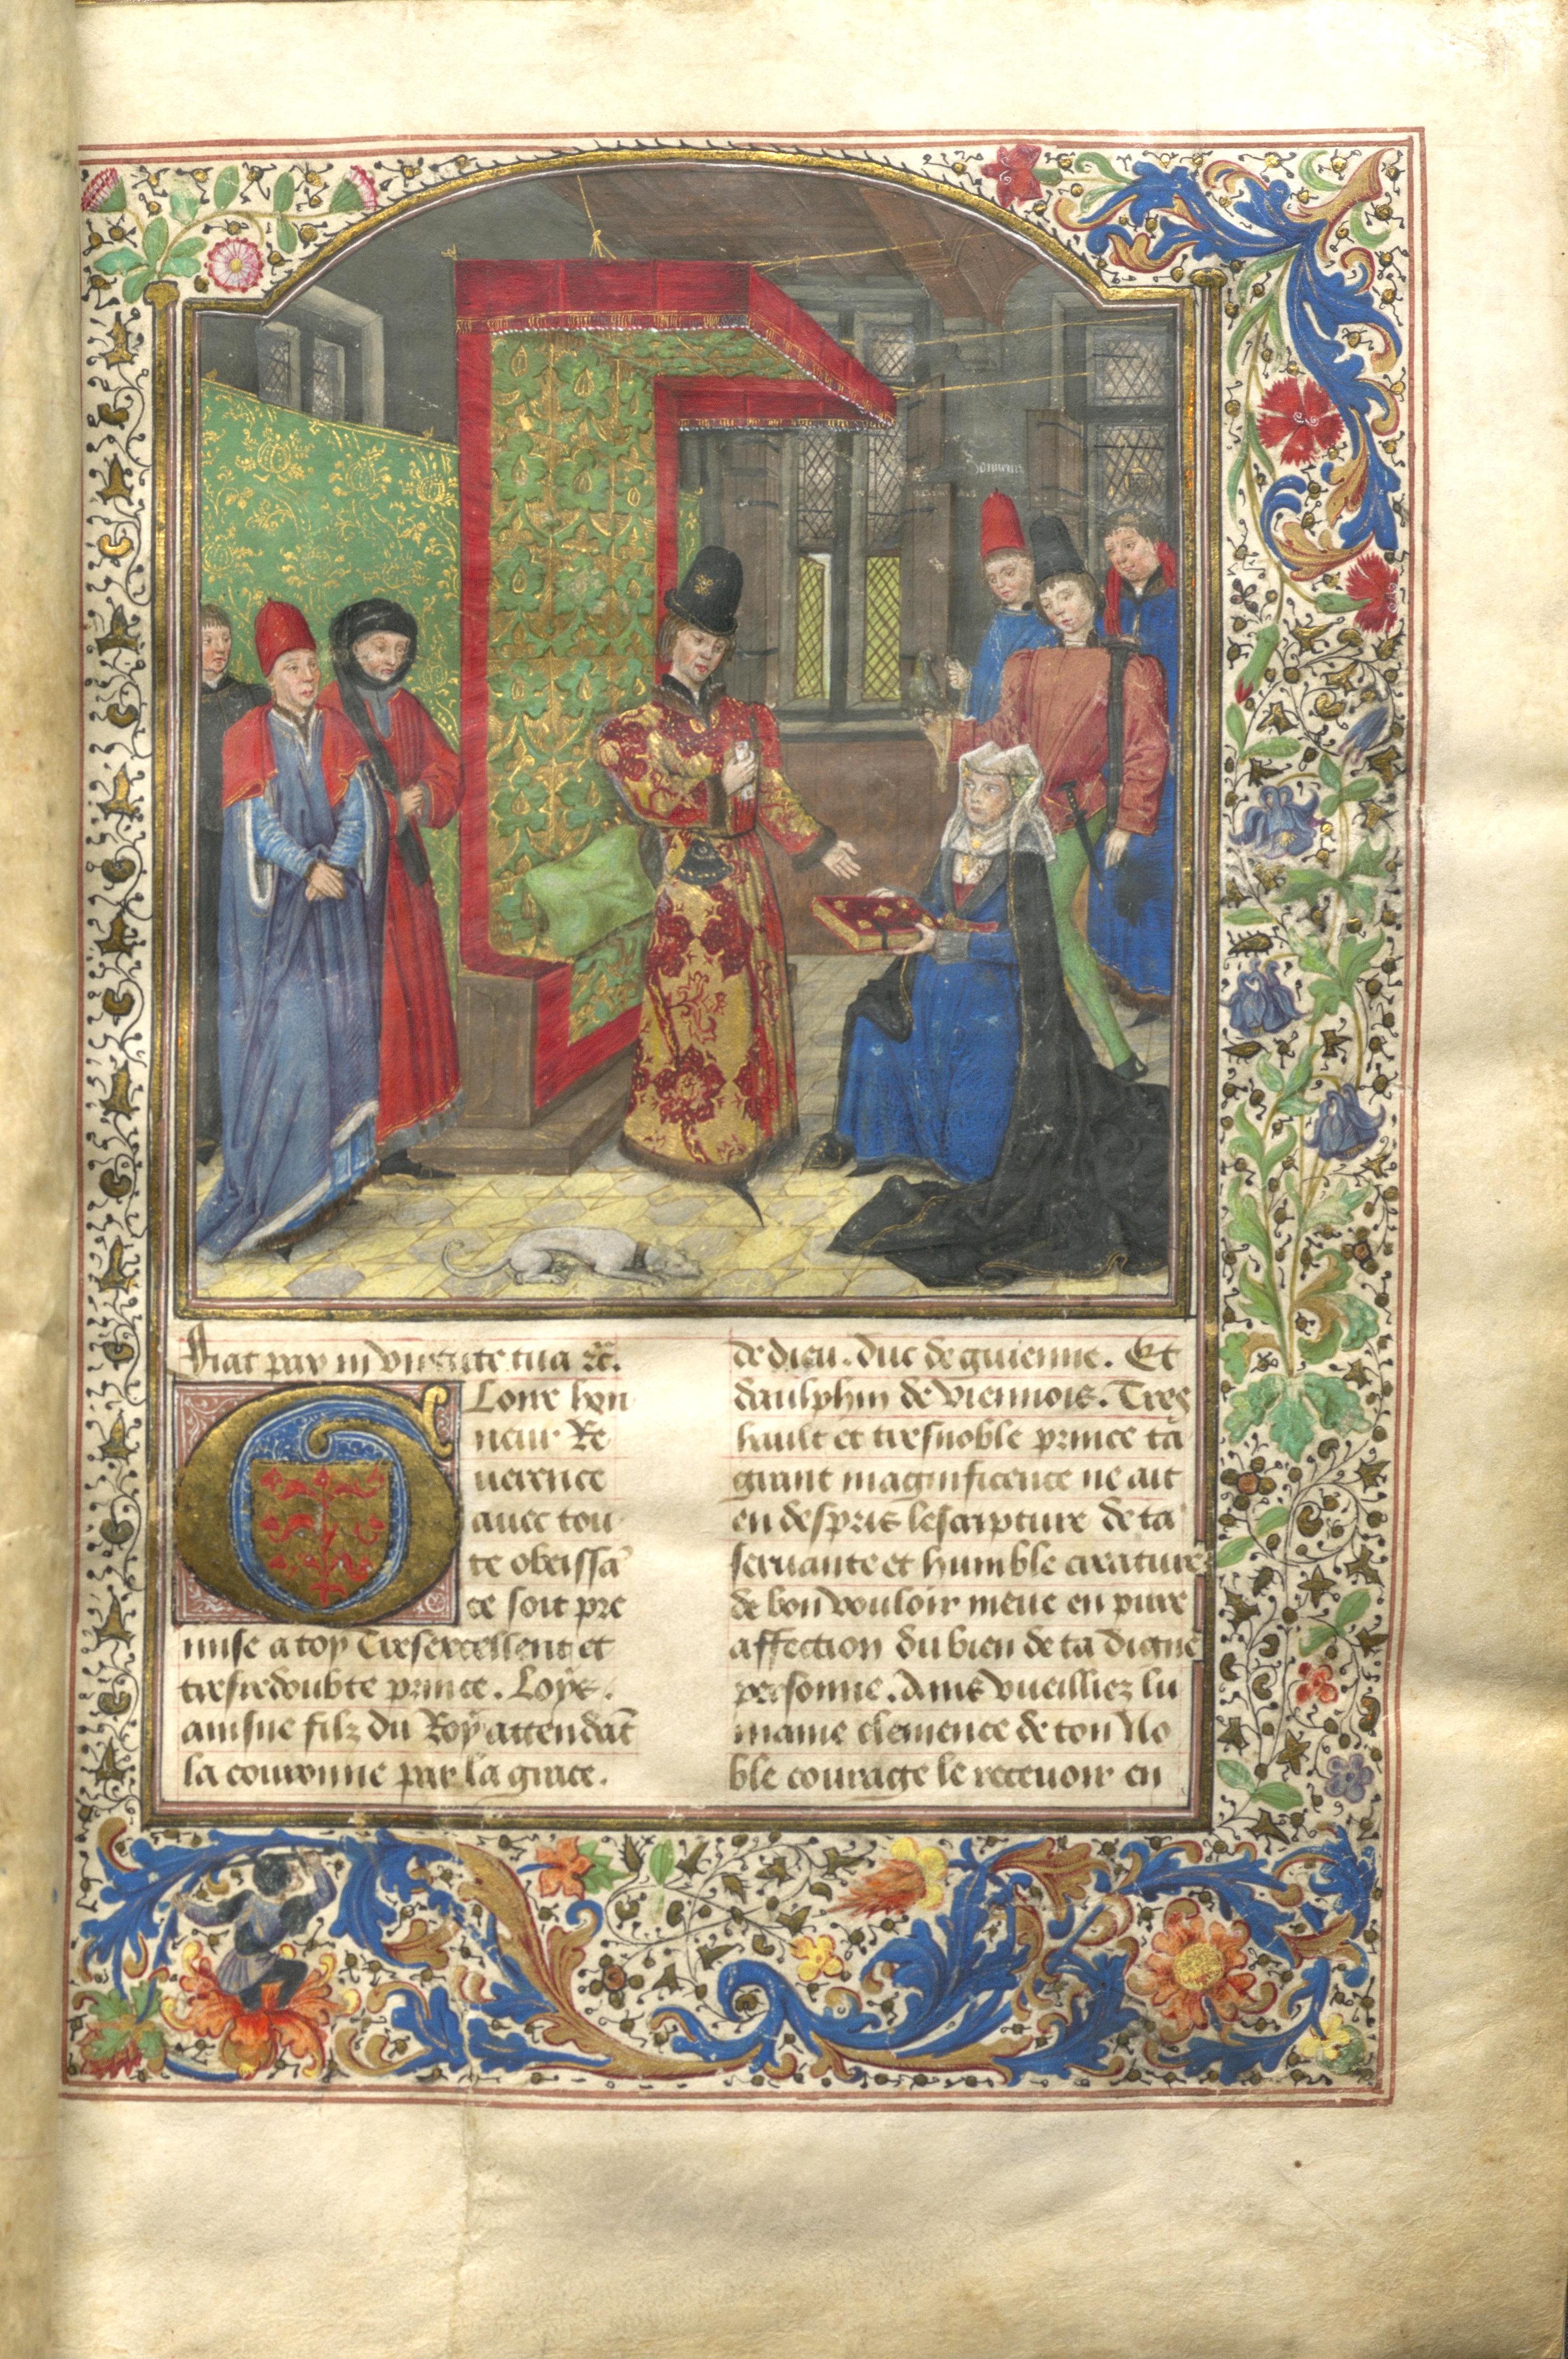 Fiat pax in virtute tua &c.
Loire hon
neur Re
uerence
auec tou
te obeissā
ce soit pre
mise a toy Tresexcellent et
tresredoubte prince. Loys.
ainsne filz du Roy attendāt
la couronne par la grace.
de dieu. duc de guienne. Et
daulphin de viennois. Tres
hault et tresnoble prince ta
grant magnificence ne ait
en despris lescripture de ta
seruante et humble creature
de bon vouloir meue en pure
affection du bien de ta digne
personne. Ains vueilliez lu
maine clemence de ton No
ble courage le receuoir en